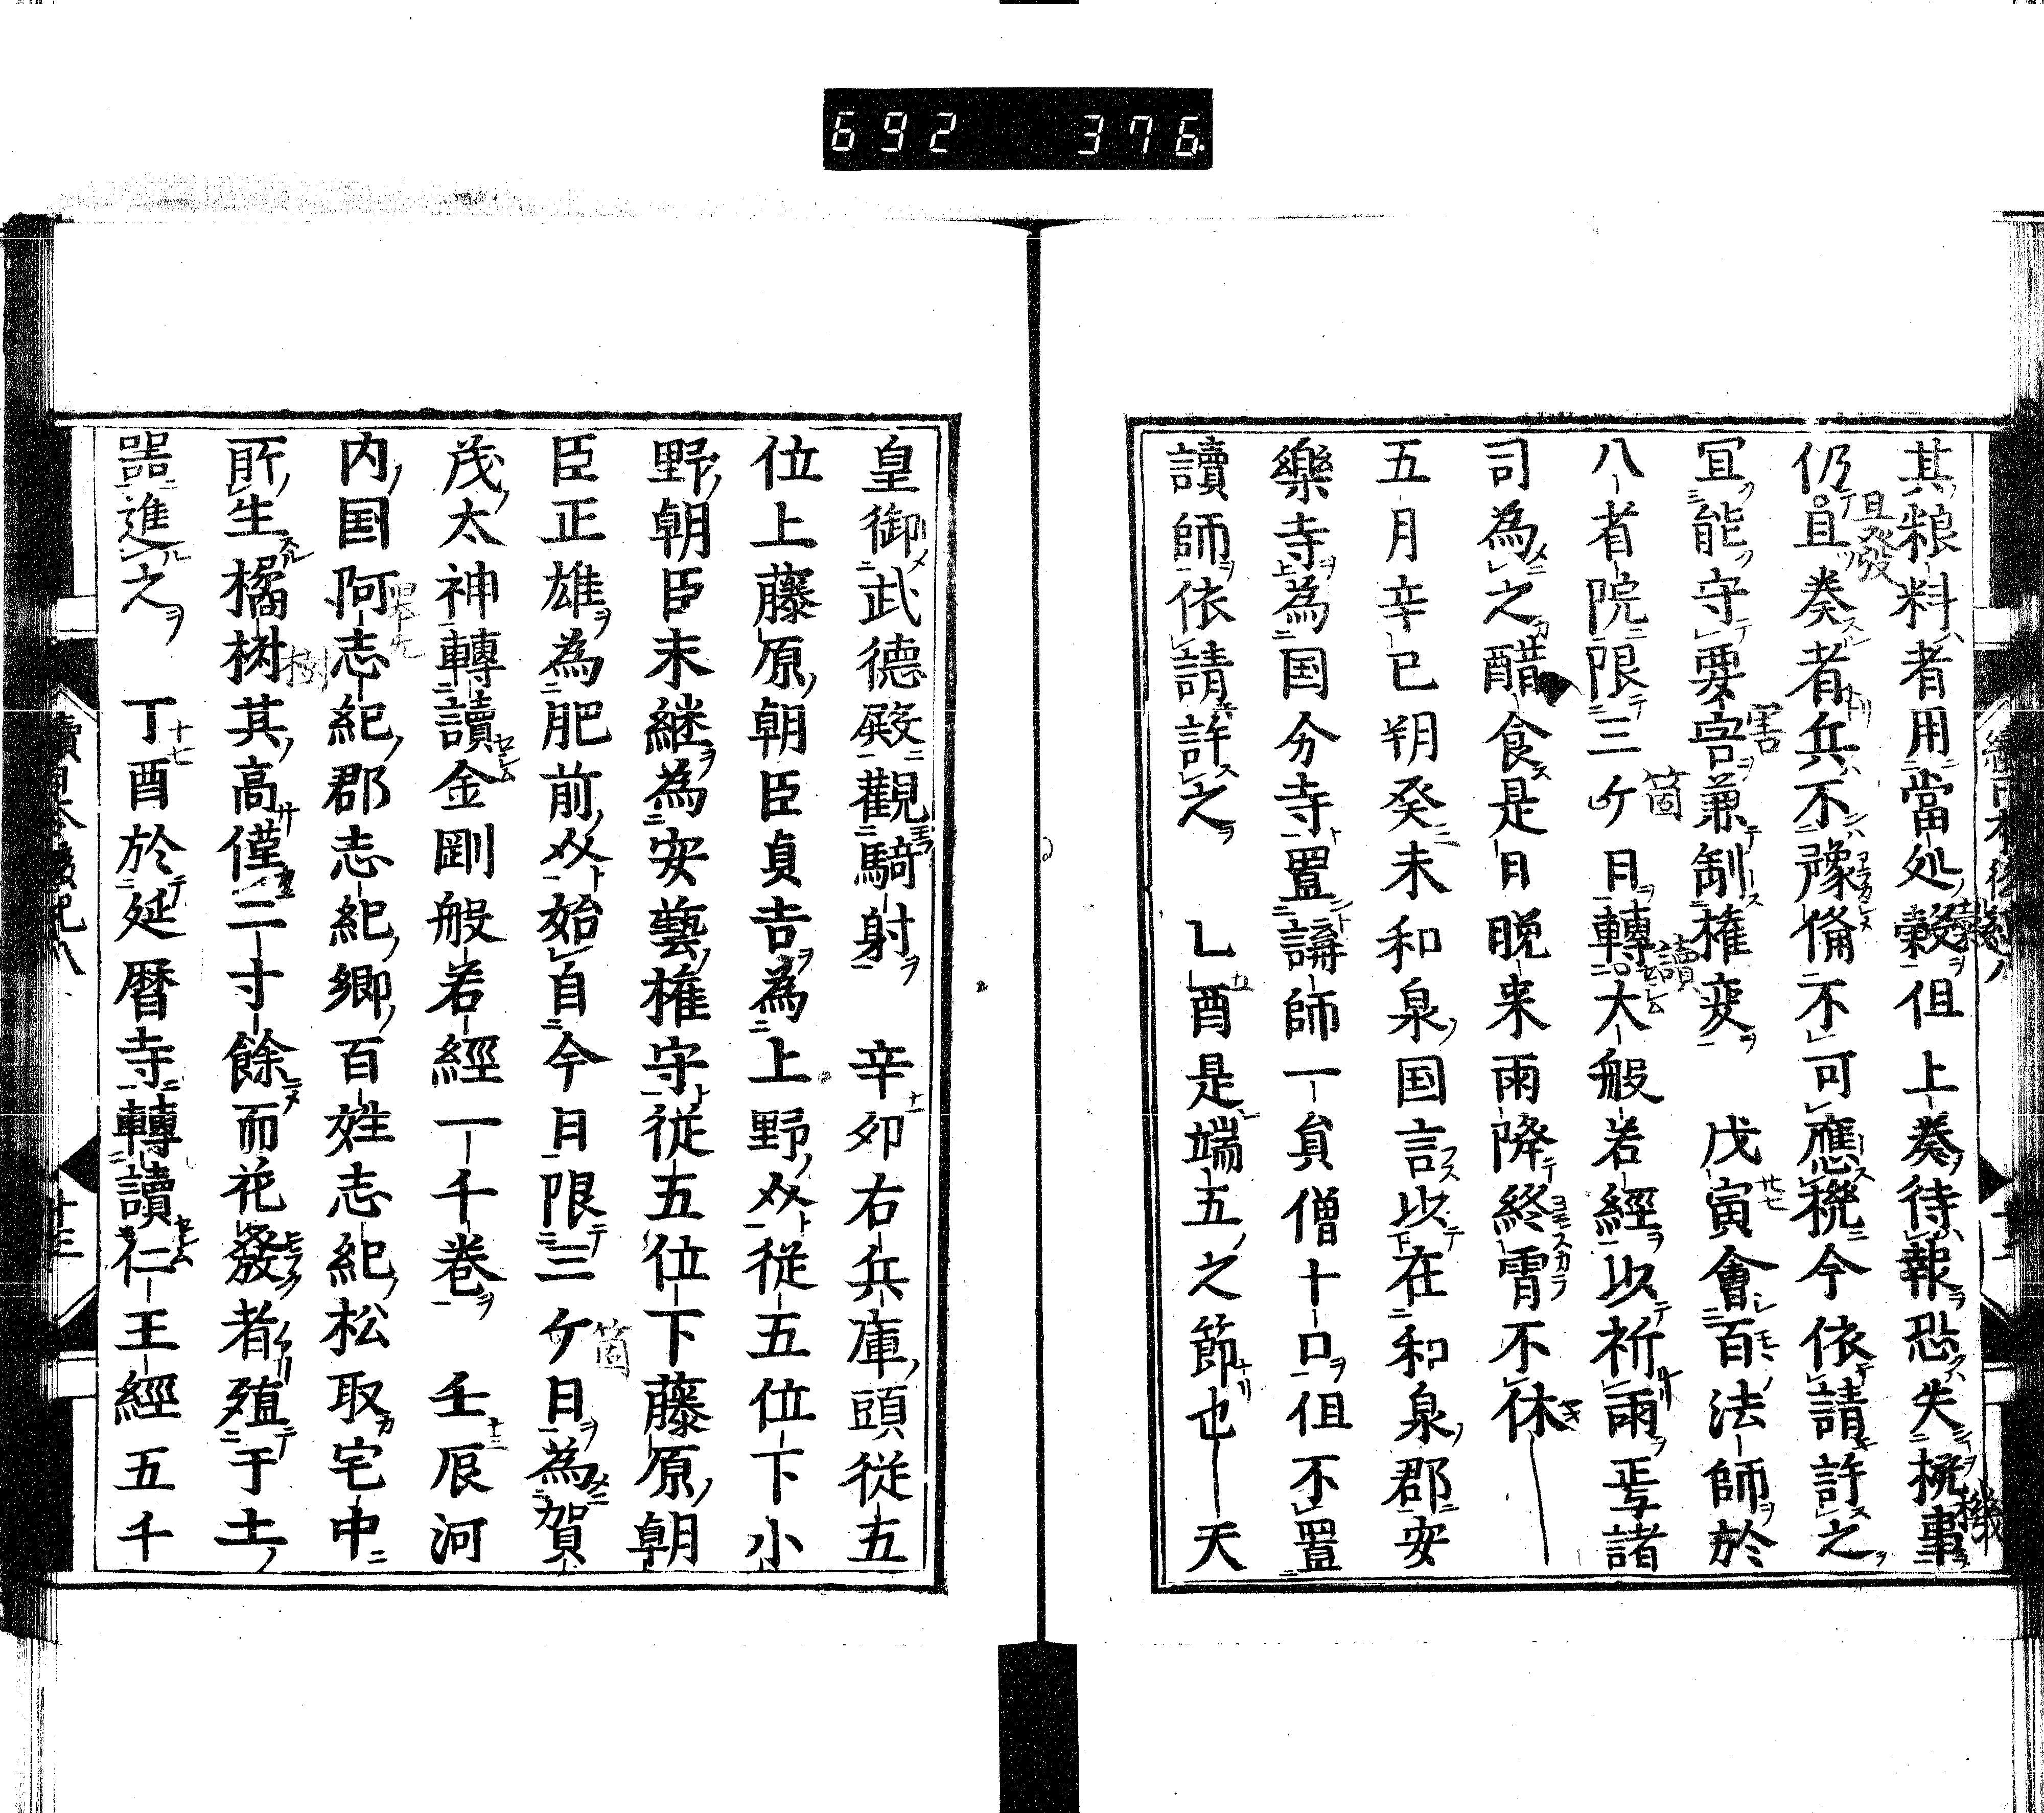 692 376
其粮料者用當処穀但上奏待報恐失機事
仍且奏者兵不豫俻不可應機今依請許之
冝能守要害兼制權変 戊寅會百法師於
八省院限三ケ日轉大般若經以祈雨焉諸
司為之醋食是日晩来雨降終霄不休
五月辛巳朔癸未和泉国言以在和泉郡安
樂寺為国分寺置講師一員僧十口但不置
讀師依請許之 乙酉是端五之節也天
皇御武德殿觀騎射 辛夘右兵庫頭従五
位上藤原朝臣貞吉為上野介従五位下小
野朝臣末継為安藝權守従五位下藤原朝
臣正雄為肥前介始自今日限三ケ日為賀
茂太神轉讀金剛般若經一千巻 壬辰河
内国阿志紀郡志紀郷百姓志紀松取宅中
所生橘树其高僅二寸餘而花發者殖于土
噐進之 丁酉於延暦寺轉讀仁王經五千